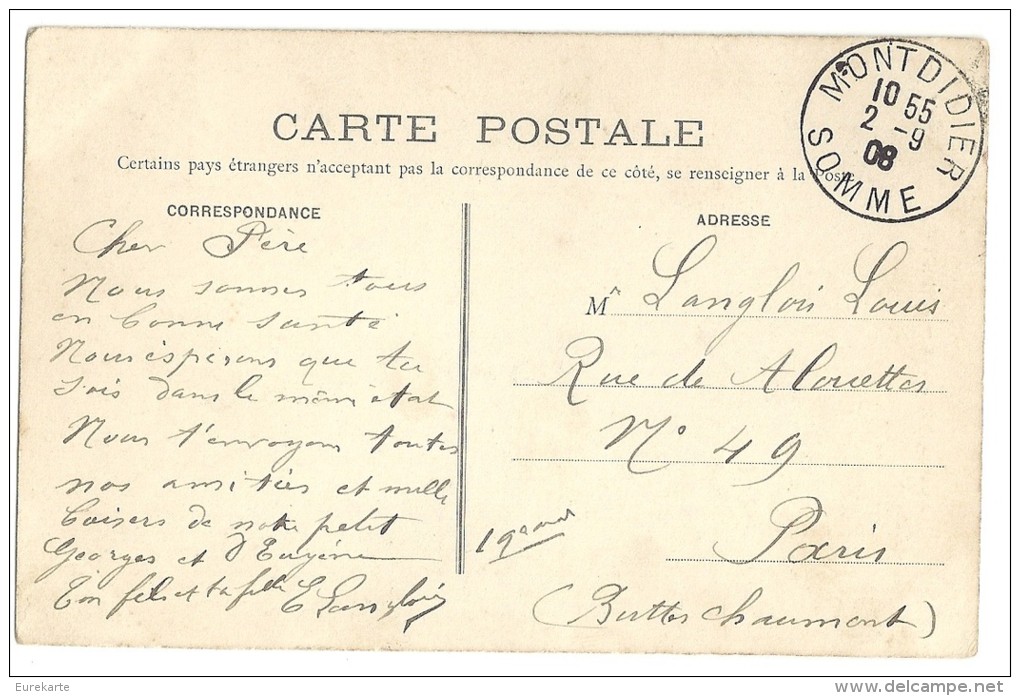 MONTDIDIER
10 55
2 - 9
08
SOMME
CARTE POSTALE
Certains pays étrangers n'acceptant pas la correspondance de ce côté, se renseigner à la Poste
CORRESPONDANCE
Cher Père
Nous sommes tous
en bonne santé
Nous espérons que tu
sois dans le même état
Nous t'envoyons toutes
nos amitiés et mille
baisers de notre petit
Georges et d'Eugénie
Ton fils et ta fille E Langlois
ADRESSE
Mr Langlois Louis
Rue de Alouettes
No 49
19e arr
Paris
(Buttes Chaumont)
Eurekarte
www.delcampe.net